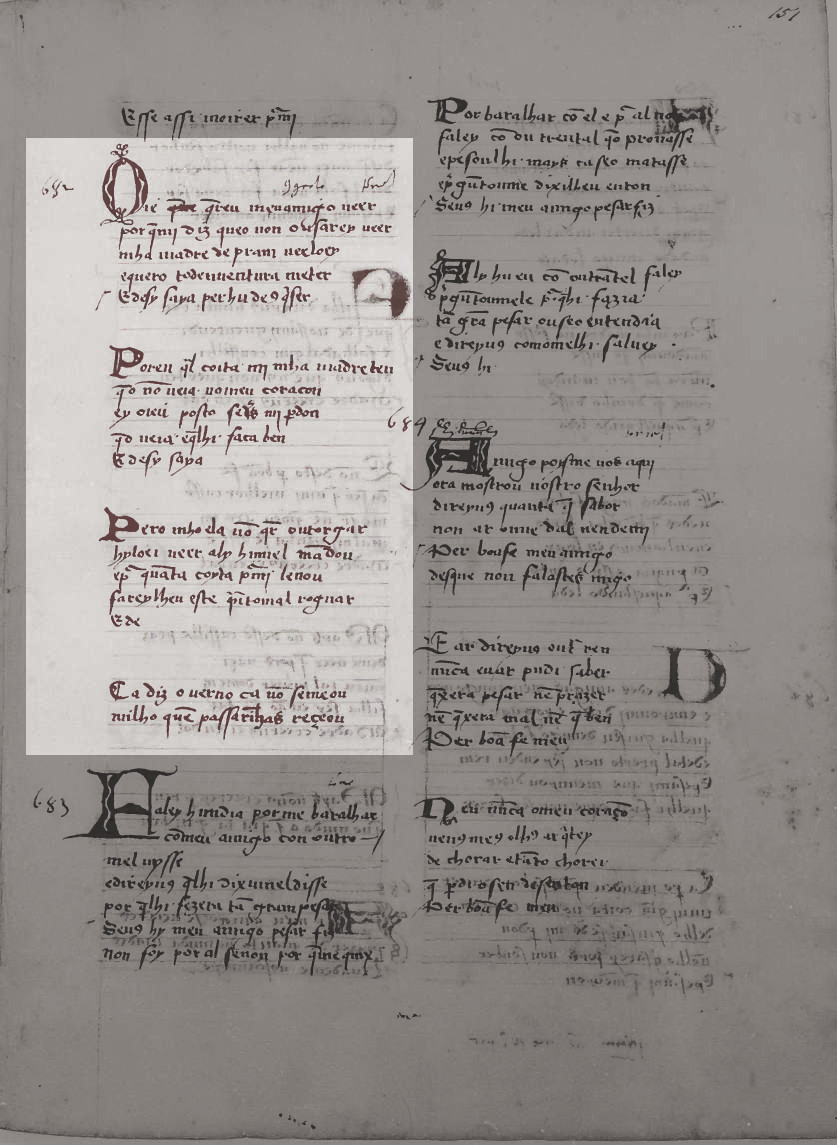 157
Esse assi moirer p̃ mi
682
Oie q̃reu meu amigo veer
por q̃ mi diz que o non ousarey veer
mha madre de pram veeloey
e quero todenventura meter
E desy saya per hu de9 q̃ser
Poren q̃l coita mi mha madre ten
q̃o nõ veia no meu coraçon
ey oieu posto se d's mi p̃don
q̃o veia e q̃lhi faca ben
E desy saya
Pero mho ela nõ q̃r outorgar
hyloei veer aly hu miel mãdou
e p̃ quãta coyta p̃ mi leuou
fareylheu este p̃itomal roguar
E de
Ca diz o uerno ca nõ semeou
milho quẽ passarinhas reçeou
683
Faley hũ dia por me baralhar
cõ meu amigo con outro
mel uysse
e direyu9 q̃lhi dix u mel disse
por q̃lhi fezera tã gram pesar
Seu9 hy meu amigo pesar fiz
non foy por al senon por q̃ me quix
Por baralhar cõ el e p̃ al nõ
faley cõ ou tren tal q̃o prouasse
e pesoulhi mays ca seo matasse
e p̃gũtoume dixilheu enton
Seu9 hi meu amigo pesar fiz
Aly hu eu cõ outrãtel faley
p̃gũtoumele p̃ q̃lhi fazia
tã grã pesar ou seo entendia
e direyu9 comomelhi saluey
Seu9 hi
684
Amigo poisme uos aqui
ora mostrou nostro senhor
direyu9 quanta q̃ sabor
non ar ouue dal nen demi
Per boafe meu amigo
desque non falastes migo
E ar direyu9 out̃ ren
nũca eu ar pudi saber
q̃xera pesar nẽ prazer
nẽ q̃xera mal nẽ q̃xben
Per boa fe meu
Neu nũca o meu coraçõ
nen9 me9 olh9 ar q̃tey
de chorar e tãto chorey
q̃ p̃di o sen des enton
Per boa fe meu